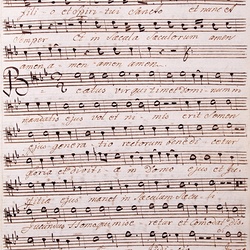 filio et Spiritui Sancto et nunc et
semper et in Saecula Saeculorum amen
amen a- men amen amen.
Beatus vir qui timet Dominum in
mandatis ejus volet ni- mis erit semen
ejus genera- tio rectorum benedi- cetur
gloria et divitia in Domo ejus et ju-
stitia ejus manet in Saeculum Saecu- li